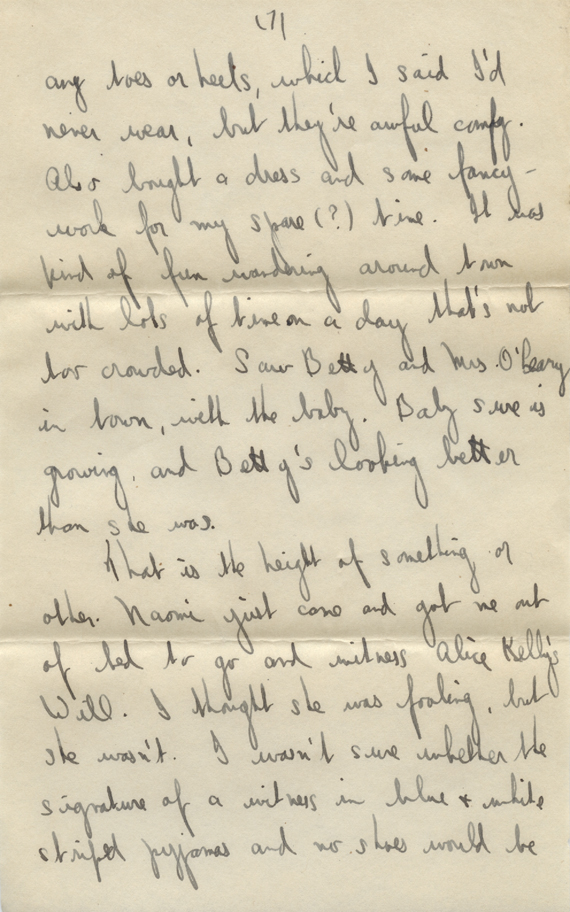 (7)
any toes or heels, which I said I'd
never wear, but they're awful comfy.
Also bought a dress and some fancy-
work for my spare (?) time. It was
kind of fun wandering around town
with lots of time on a day that's not
too crowded. Saw Betty and Mrs. O'Leary
in town, with the baby. Baby sure is
growing, and Betty's looking better
than she was.
That is the height of something or
other. Naomi just came and got me out
of bed to go and witness Alice Kelly's
Will. I thought she was fooling, but
she wasn't. I wasn't sure whether the
signature of a witness in blue & white
striped pyjamas and no shoes would be